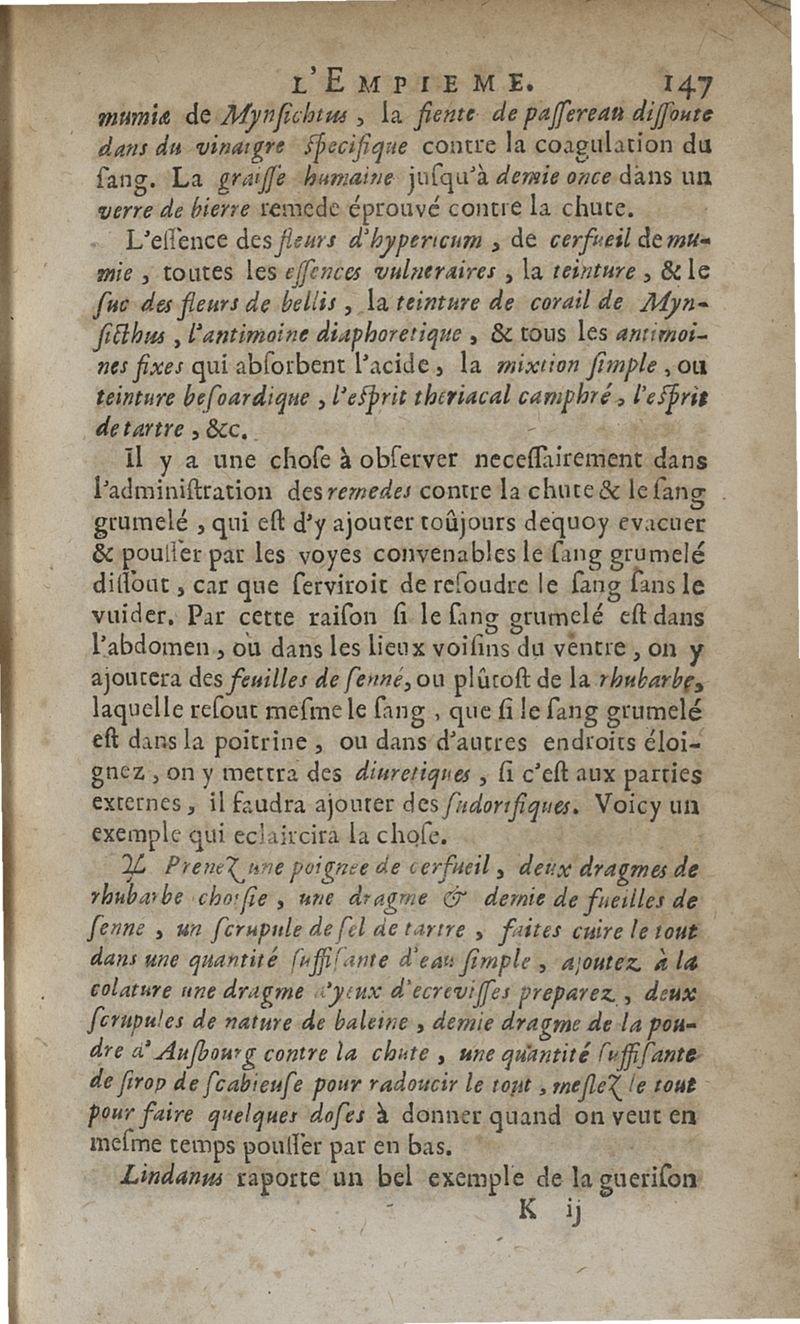 L'EMPIEME. 147
mumiæ de Mynsichtus, la fiente de passereau dissoute
dans du vinaigre specifique contre la coagulation du
sang. La graisse humaine jusqu'à demie once dans un
verre de bierre remede éprouvé contre la chute.
L'essence des fleurs d'hypericum, de cerfueil de mu-
mie, toutes les essences vulneraires, la teinture, & le
suc des fleurs de bellis, la teinture de corail de Myn-
sicthus, l'antimoine diaphoretique, & tous les antimoi-
nes fixes qui absorbent l'acide, la mixtion simple, ou
teinture besoardique, l'esprit theriacal camphré, l'esprit
de tartre, &c.
Il y a une chose à observer necessairement dans
l'administration des remedes contre la chute & le sang
grumelé, qui est d'y ajouter toûjours dequoy evacuer
& pousser par les voyes convenables le sang grumelé
dissout, car que serviroit de resoudre le sang sans le
vuider. Par cette raison si le sang grumelé est dans
l'abdomen, ou dans les lieux voisins du ventre, on y
ajoutera des feuilles de senné, ou plûtost de la rhubarbe,
laquelle resout mesme le sang, que si le sang grumelé
est dans la poitrine, ou dans d'autres endroits éloi-
gnez, on y mettra des diuretiques, si c'est aux parties
externes, il faudra ajouter des sudorifiques. Voicy un
exemple qui eclaircira la chose.
♃ Prenez une poignée de cerfueil, deux dragmes de
rhubarbe choisie, une dragme & demie de fueilles de
senne, un scrupule de sel de tartre, faites cuire le tout
dans une quantité suffisante d'eau simple, ajoutez à la
colature une dragme d'yeux d'ecrevisses preparez, deux
scrupules de nature de baleine, demie dragme de la pou-
dre d'Ausbourg contre la chute, une quantité suffisante
de sirop de scabieuse pour radoucir le tout, meslez le tout
pour faire quelques doses à donner quand on veut en
mesme temps pousser par en bas.
Lindanus raporte un bel exemple de la guerison
K ij